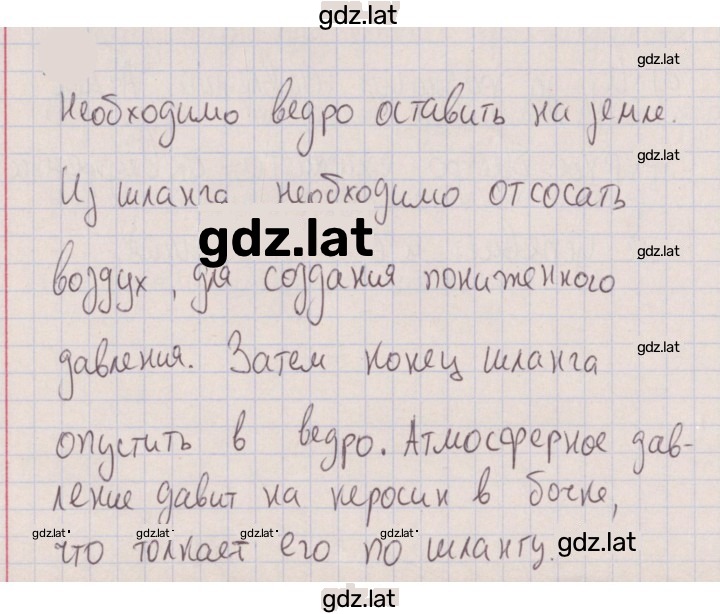 gdz.lat
gdz.lat
Необходимо ведро оставить на земле.
gdz.lat
Из шланга необходимо отсосать
gdz.lat
gdz.lat
воздух, для создания пониженного
gdz.lat
давления. Затем конец шланга
опустить в ведро. Атмосферное дав-
ление давит на керосин в бочке,
gdz.lat gdz.lat gdz.lat gdz.lat
что толкает его по шлангу. gdz.lat
gdz.lat